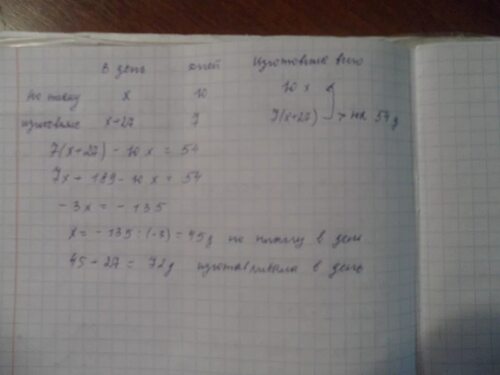 В день дней Изготовила всего
По плану x 10 10 x
изготовляе x+27 7 7(x+27) > на 54 д
7(x+27) - 10 x = 54
7x + 189 - 10 x = 54
-3x = - 135
x = - 135 : (-3) = 45 д по плану в день
45 - 27 = 72 д изготавливала в день